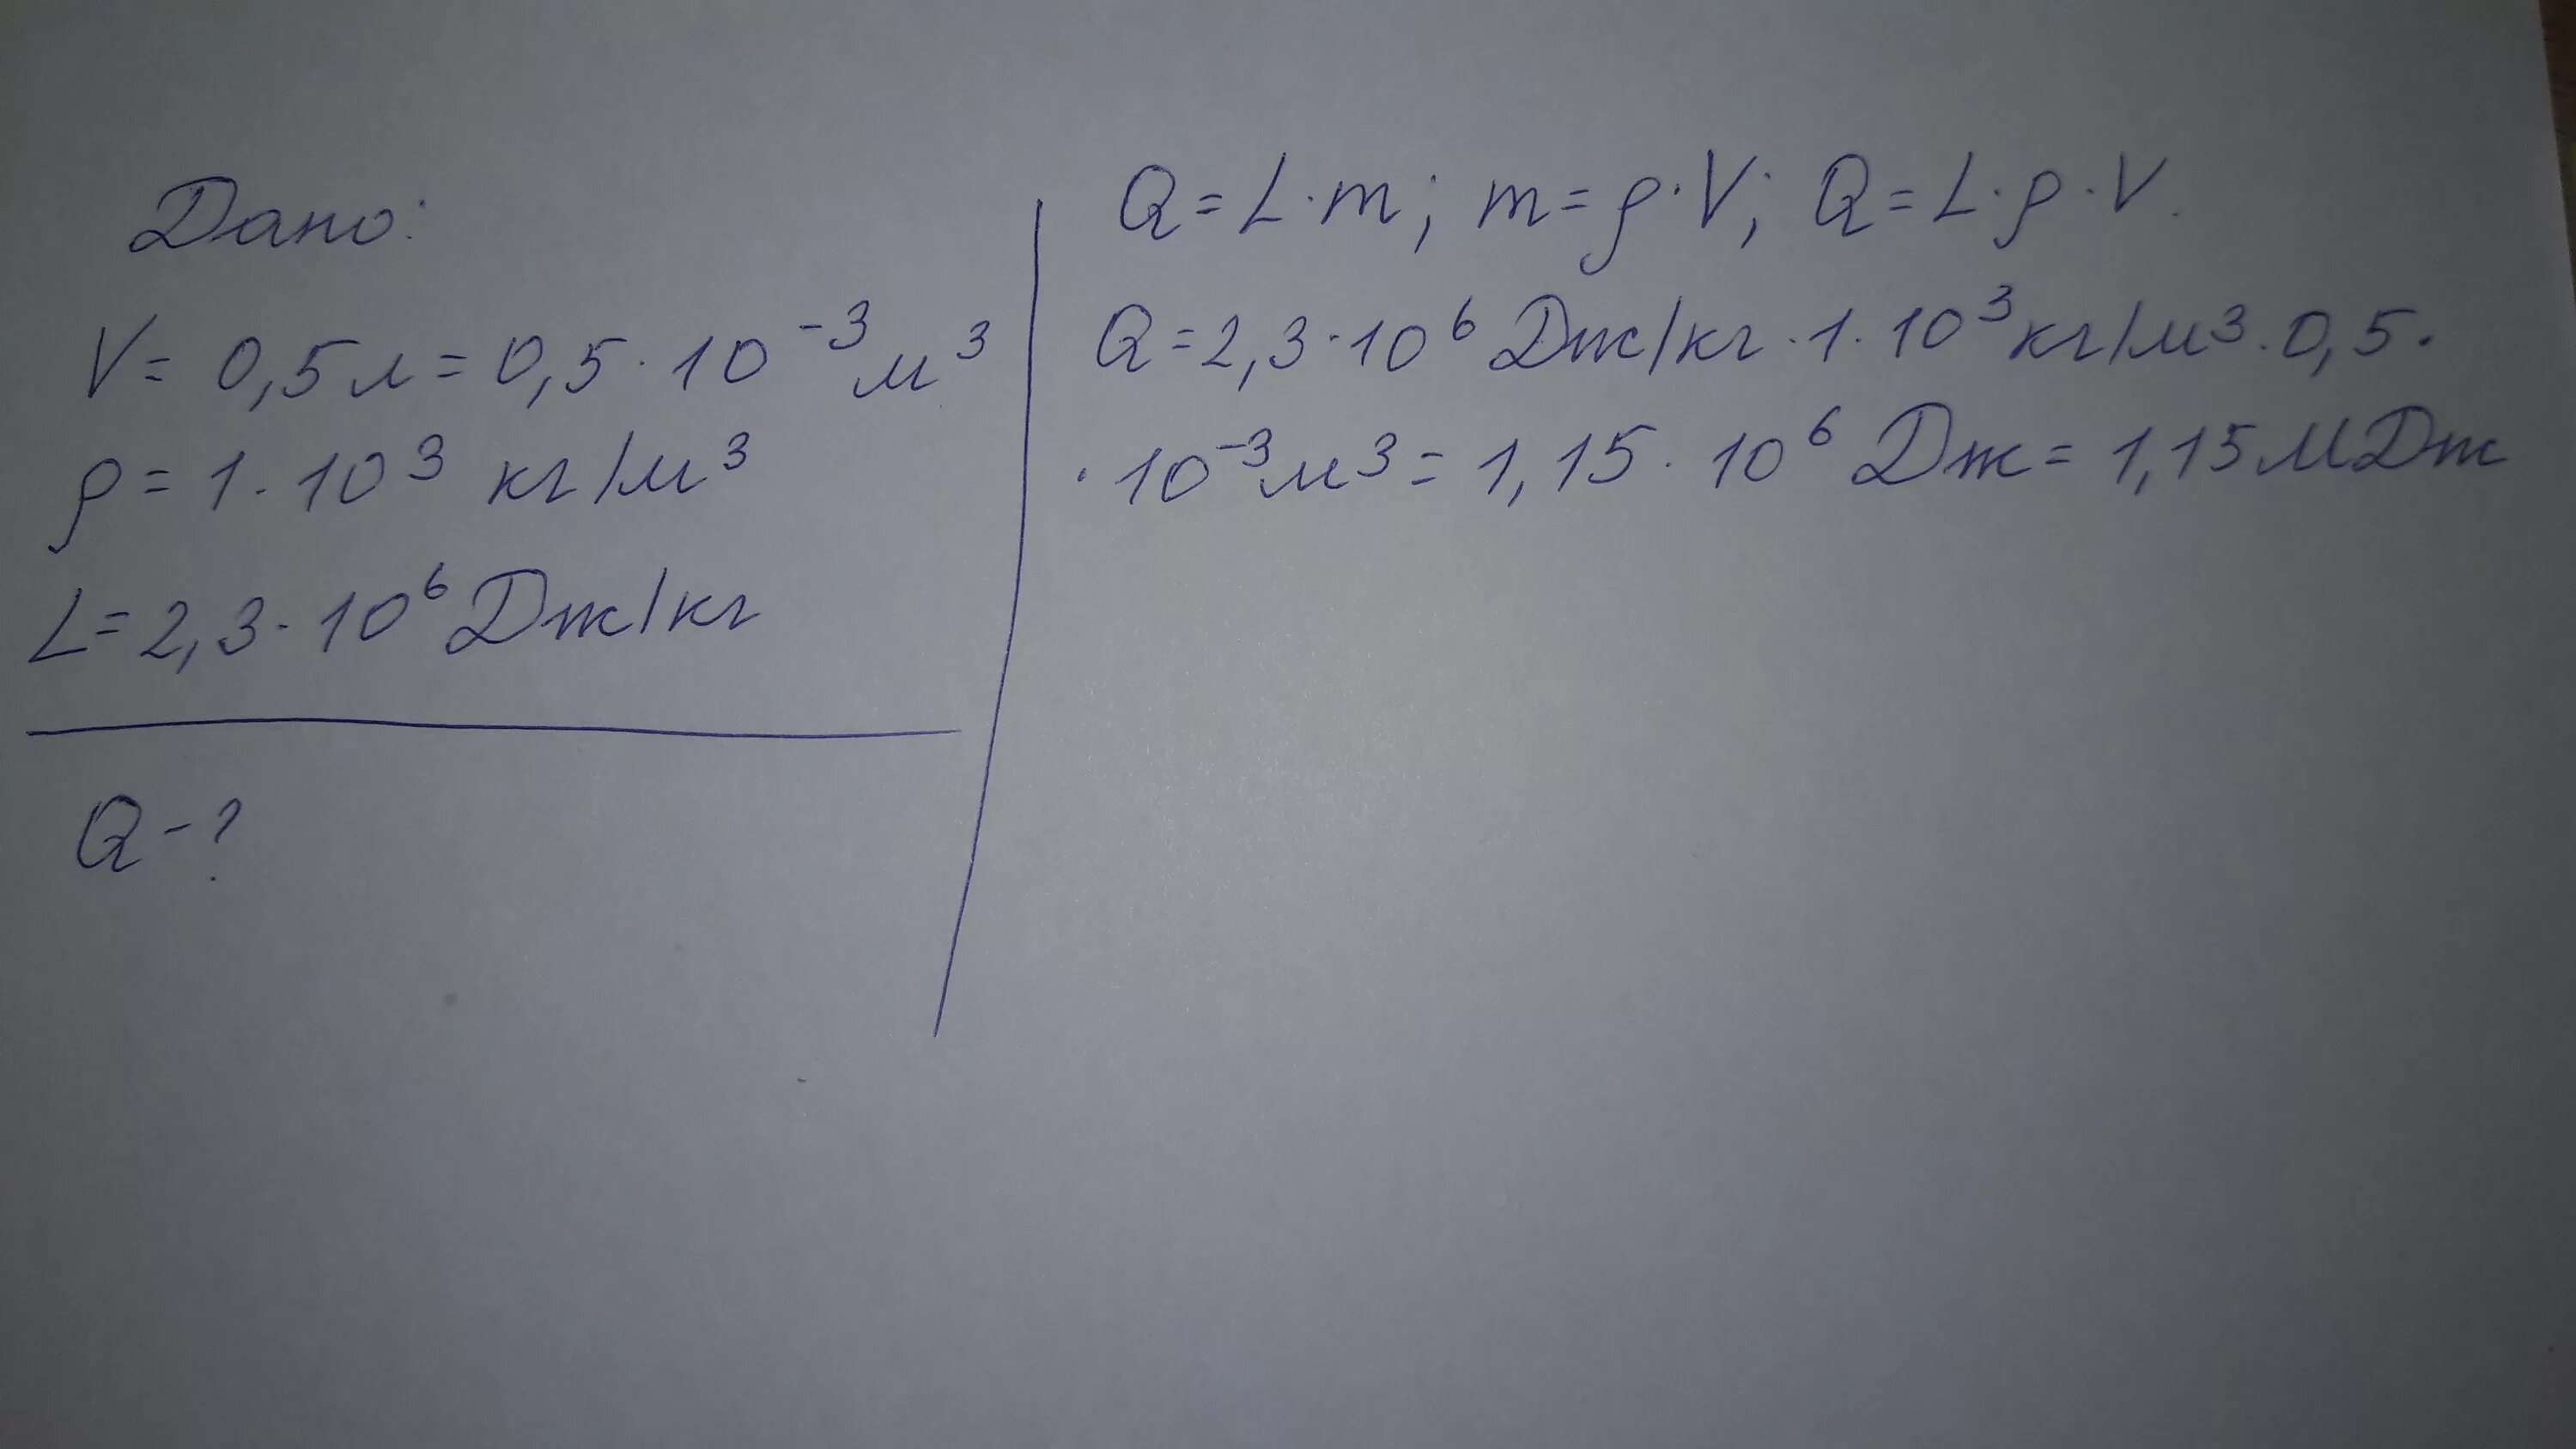 Дано:
V = 0,5 л = 0,5 · 10⁻³ м³
ρ = 1 · 10³ кг/м³
L = 2,3 · 10⁶ Дж/кг
Q - ?
Q = L · m; m = ρ · V; Q = L · ρ · V.
Q = 2,3 · 10⁶ Дж/кг · 1 · 10³ кг/м³ · 0,5 ·
· 10⁻³ м³ = 1,15 · 10⁶ Дж = 1,15 МДж